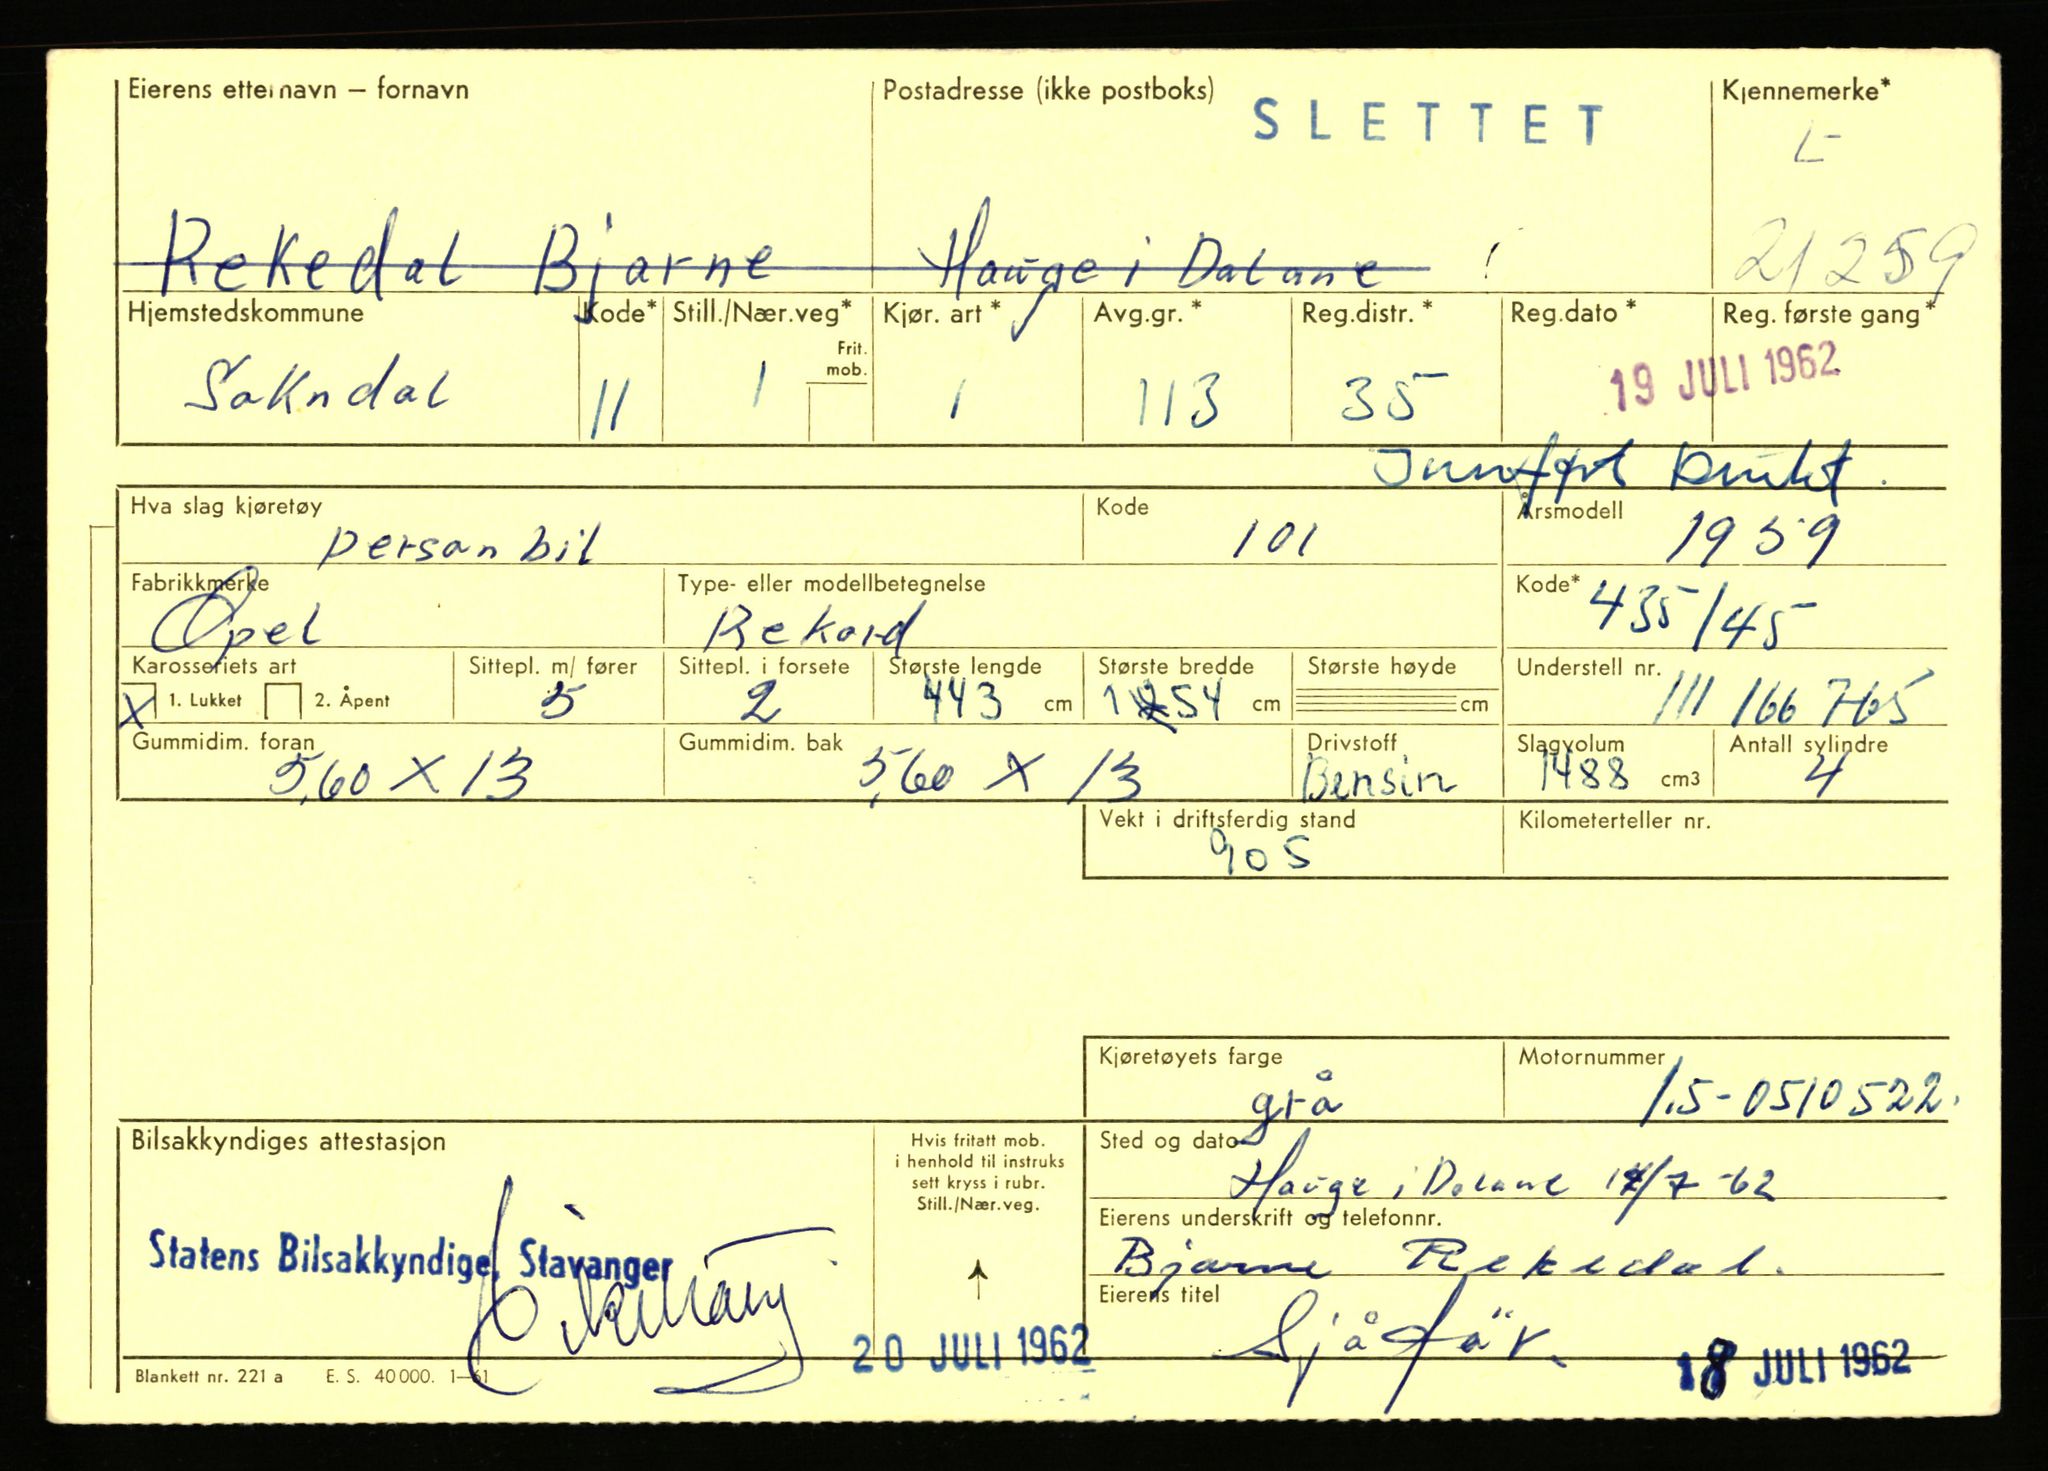 Eierens etternavn – fornavn Postadresse (ikke postboks) SLETTET Kjennemerke*
L-
Rekedal Bjarne Hauge i Dalane 21259
Hjemstedskommune Kode* Still./Nær.veg* Kjør. art* Avg.gr.* Reg.distr.* Reg.dato* Reg. første gang*
Frit. mob.
Sokndal 11 1 1 113 35 19 JULI 1962
Innført brukt.
Hva slag kjøretøy Kode Årsmodell
personbil 101 1959
Fabrikkmerke Type- eller modellbetegnelse Kode*
Opel Rekord 435/45
Karosseriets art Sittepl. m/ fører Sittepl. i forsete Største lengde Største bredde Største høyde Understell nr.
X 1. Lukket 2. Åpent 5 2 443 cm 1 54 cm cm 111 166 765
Gummidim. foran Gummidim. bak Drivstoff Slagvolum Antall sylindre
5,60 X 13 5,60 X 13 Bensin 1488 cm3 4
Vekt i driftsferdig stand Kilometerteller nr.
905
Kjøretøyets farge Motornummer
grå 1.5-0510522.
Bilsakkyndiges attestasjon Hvis fritatt mob. i henhold til instruks sett kryss i rubr. Still./Nær.veg. Sted og dato
Hauge i Dalane 17/7-62
Eierens underskrift og telefonnr.
Statens Bilsakkyndige, Stavanger Bjarne Rekedal.
Eierens titel
Sjåfär.
20 JULI 1962 18 JULI 1962
Blankett nr. 221 a E. S. 40 000. 1–61